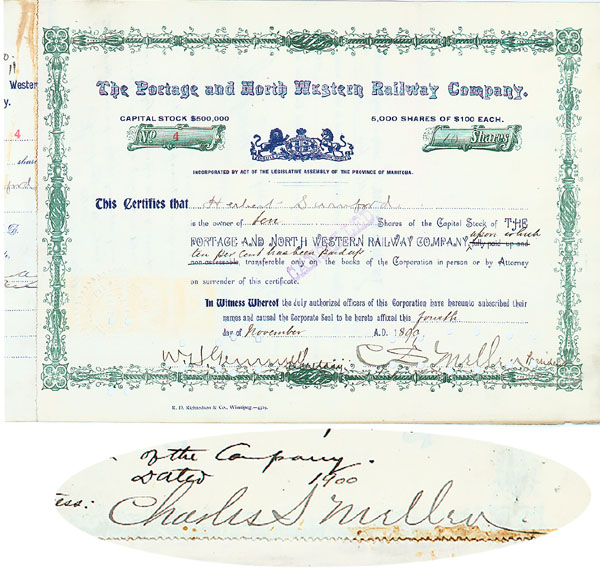 Wester
y.
4
The Portage and North Western Railway Company.
CAPITAL STOCK $500,000
5,000 SHARES OF $100 EACH.
No 4
10 Shares
INCORPORATED BY ACT OF THE LEGISLATIVE ASSEMBLY OF THE PROVINCE OF MANITOBA.
This Certifies that Herbert Swinford
is the owner of ten Shares of the Capital Stock of THE
upon which
PORTAGE AND NORTH WESTERN RAILWAY COMPANY, fully paid up and
ten per cent has been paid up
non-assessable, transferable only on the books of the Corporation in person or by Attorney
on surrender of this certificate.
In Witness Whereof the duly authorized officers of this Corporation have hereunto subscribed their
names and caused the Corporate Seal to be hereto affixed this fourth
day of November A.D. 1899
R. D. Richardson & Co., Winnipeg
of the Company.
Dated 1900
ess: Charles S Mellen